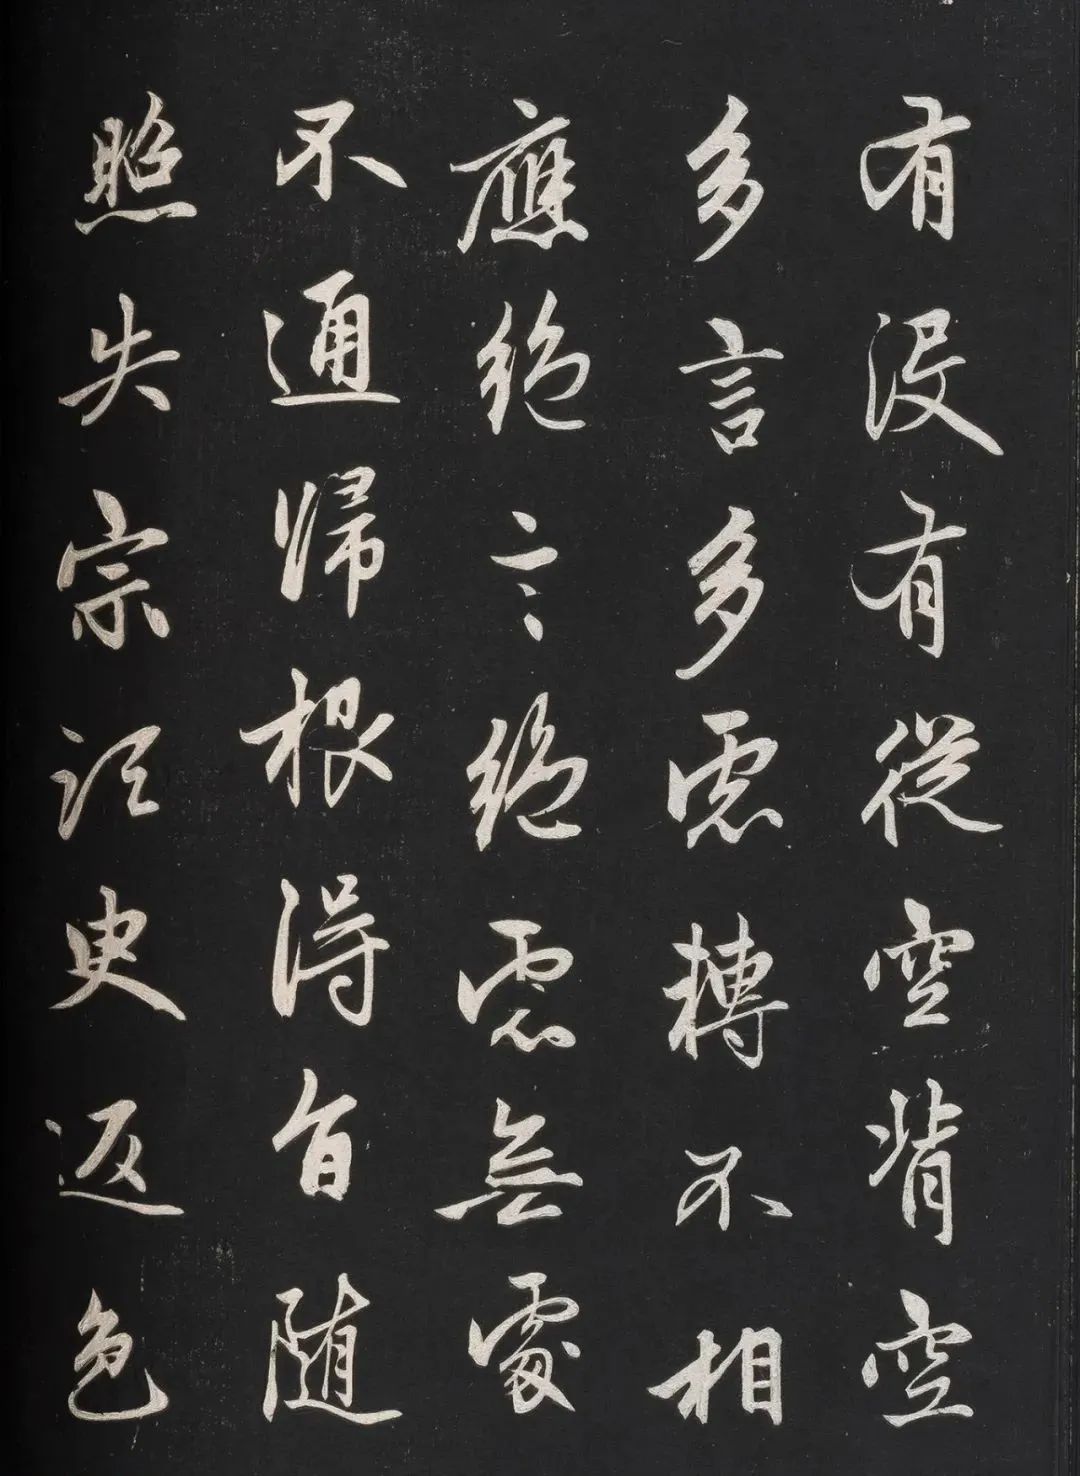 有沒有從空背空
多言多慮轉不相
應絕言絕慮無處
不通歸根得旨随
照失宗須臾返色